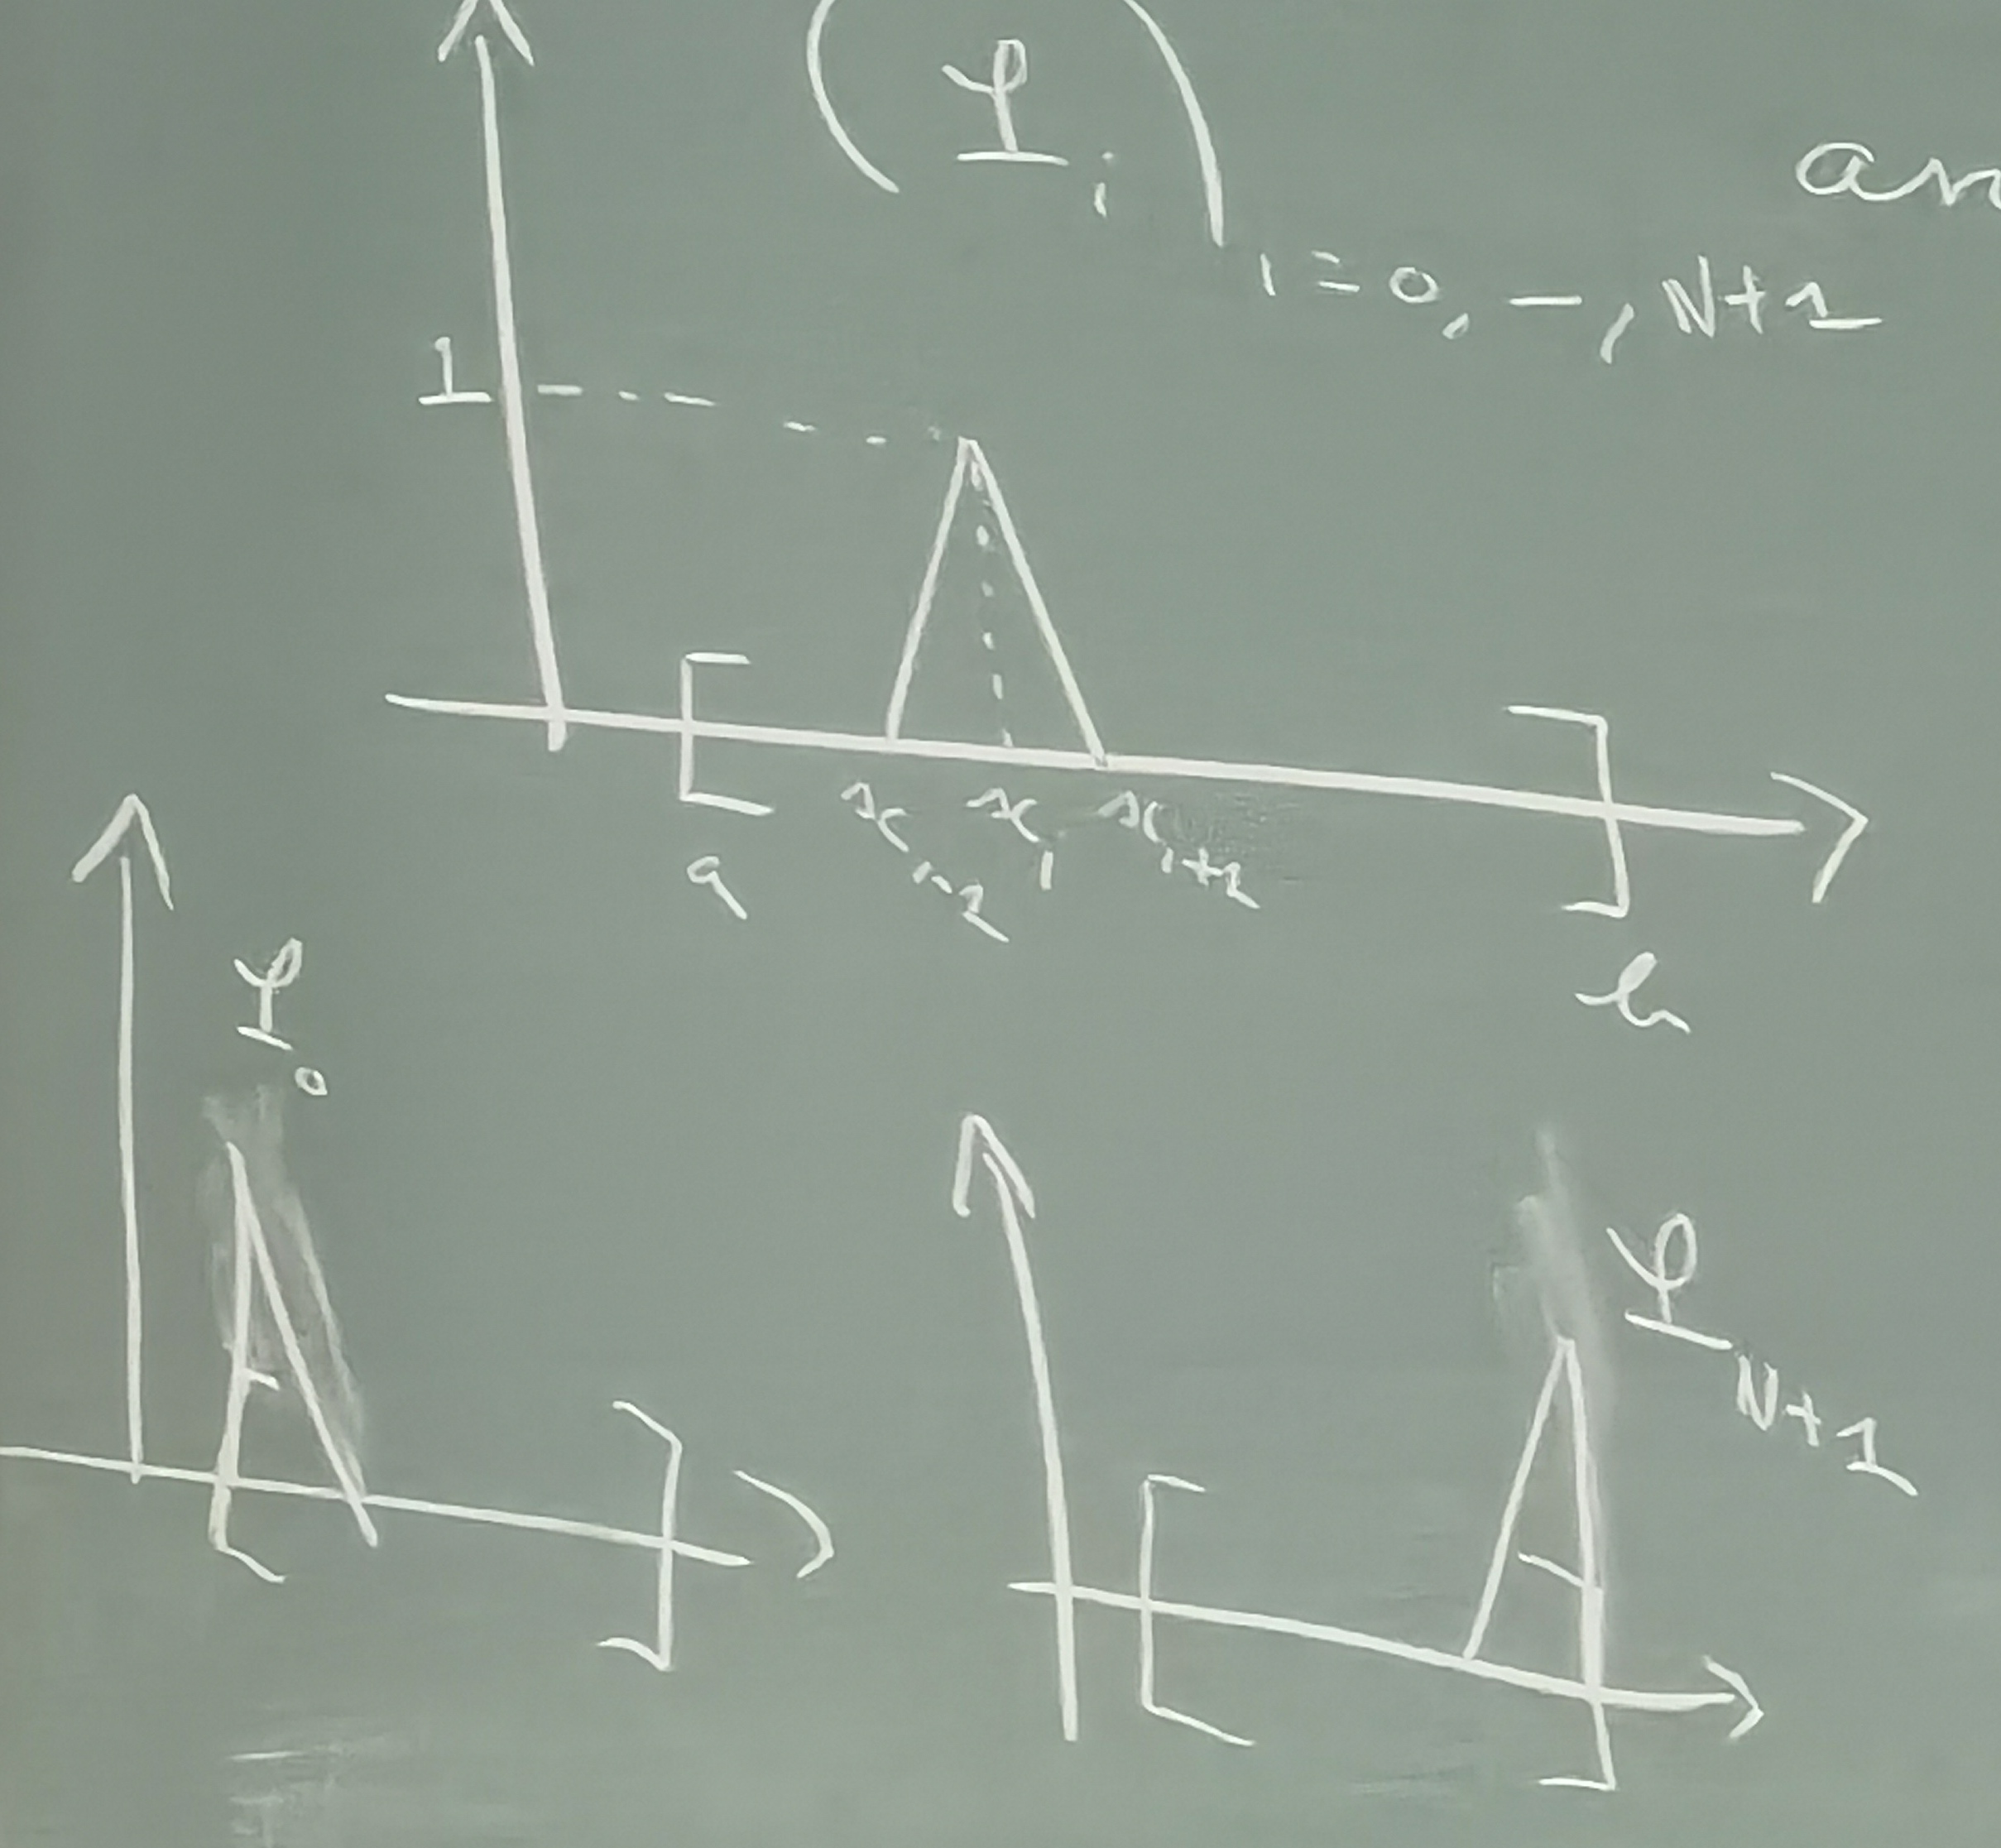 (φ_i)_{i=0, –, N+1}
an
1
a x_{i-1} x_i x_{i+1} b
φ_0
φ_{N+1}